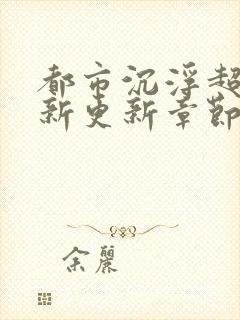 都市沉浮超
新更新章節
余麗